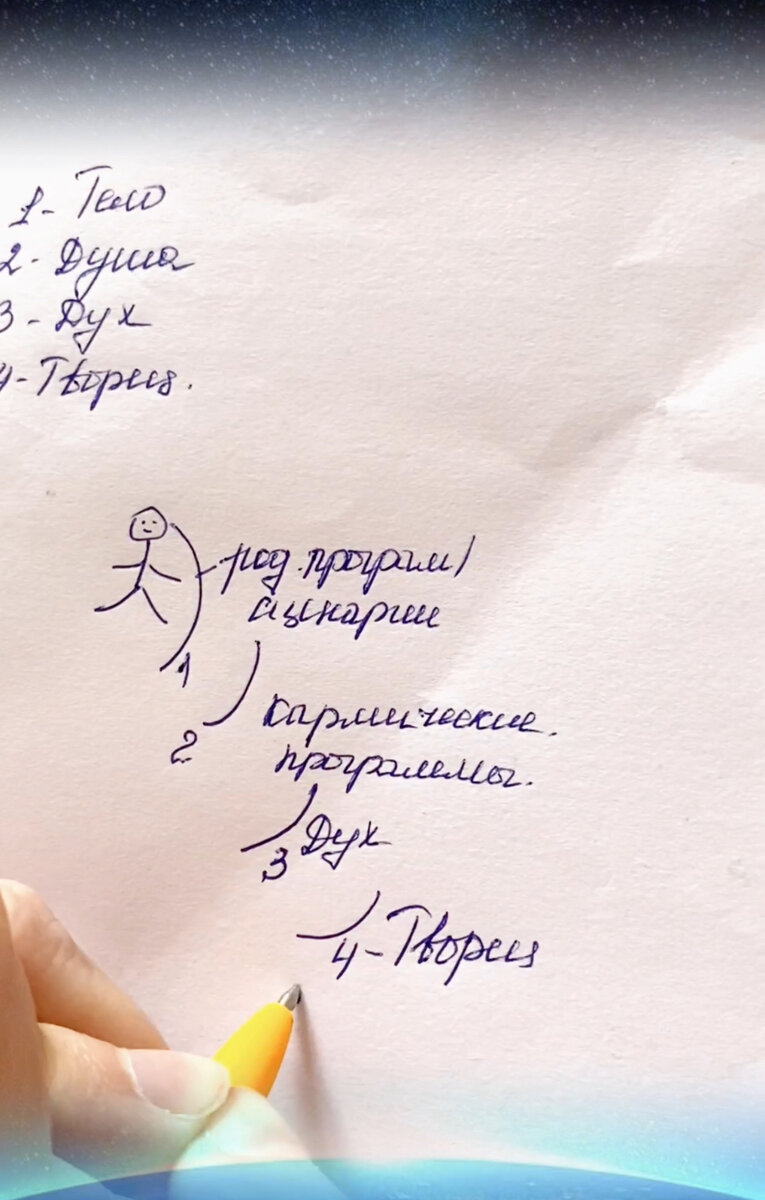 1- Тело
2- Душа
3- Дух
4-Творец.
род.програм/
сценарии
1
2
кармические.
программы.
3 Дух
4-Творец